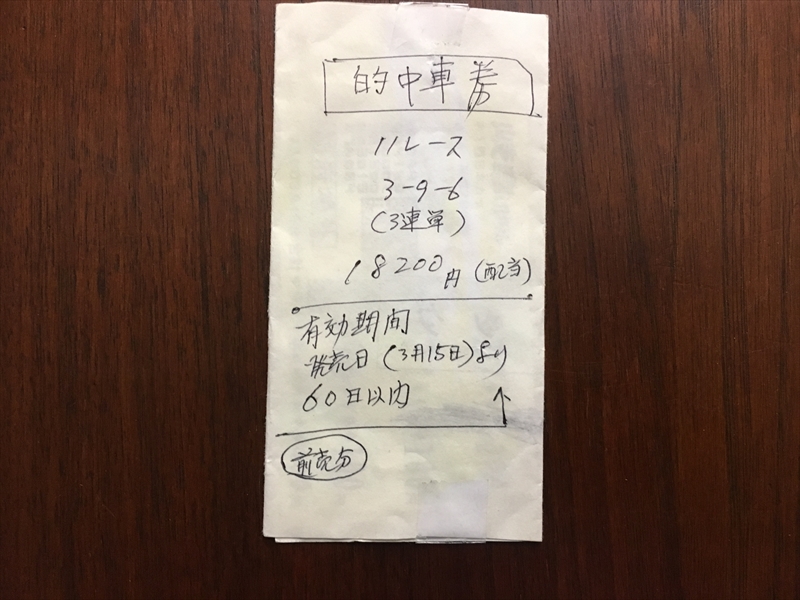 的中車券
11レース
3-9-6
(3連単)
18200円(配当)
有効期間
発売日(3月15日)より
60日以内
前売分